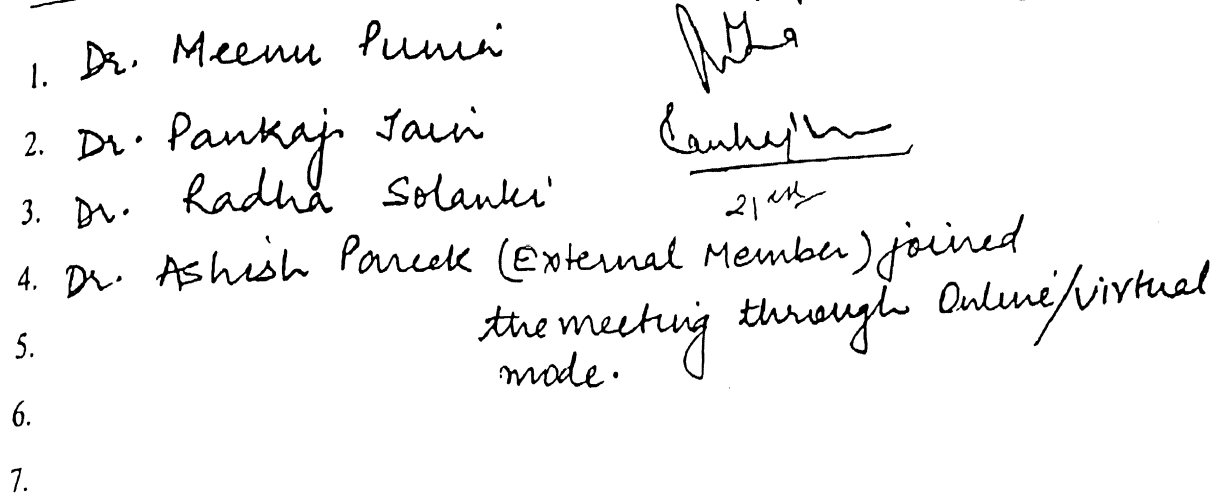 1. Dr. Meenu Punia
2. Dr. Pankaj Jain
3. Dr. Radha Solanki
4. Dr. Ashish Pareek (External Member) joined
the meeting through Online/virtual
mode.
5.
6.
7.